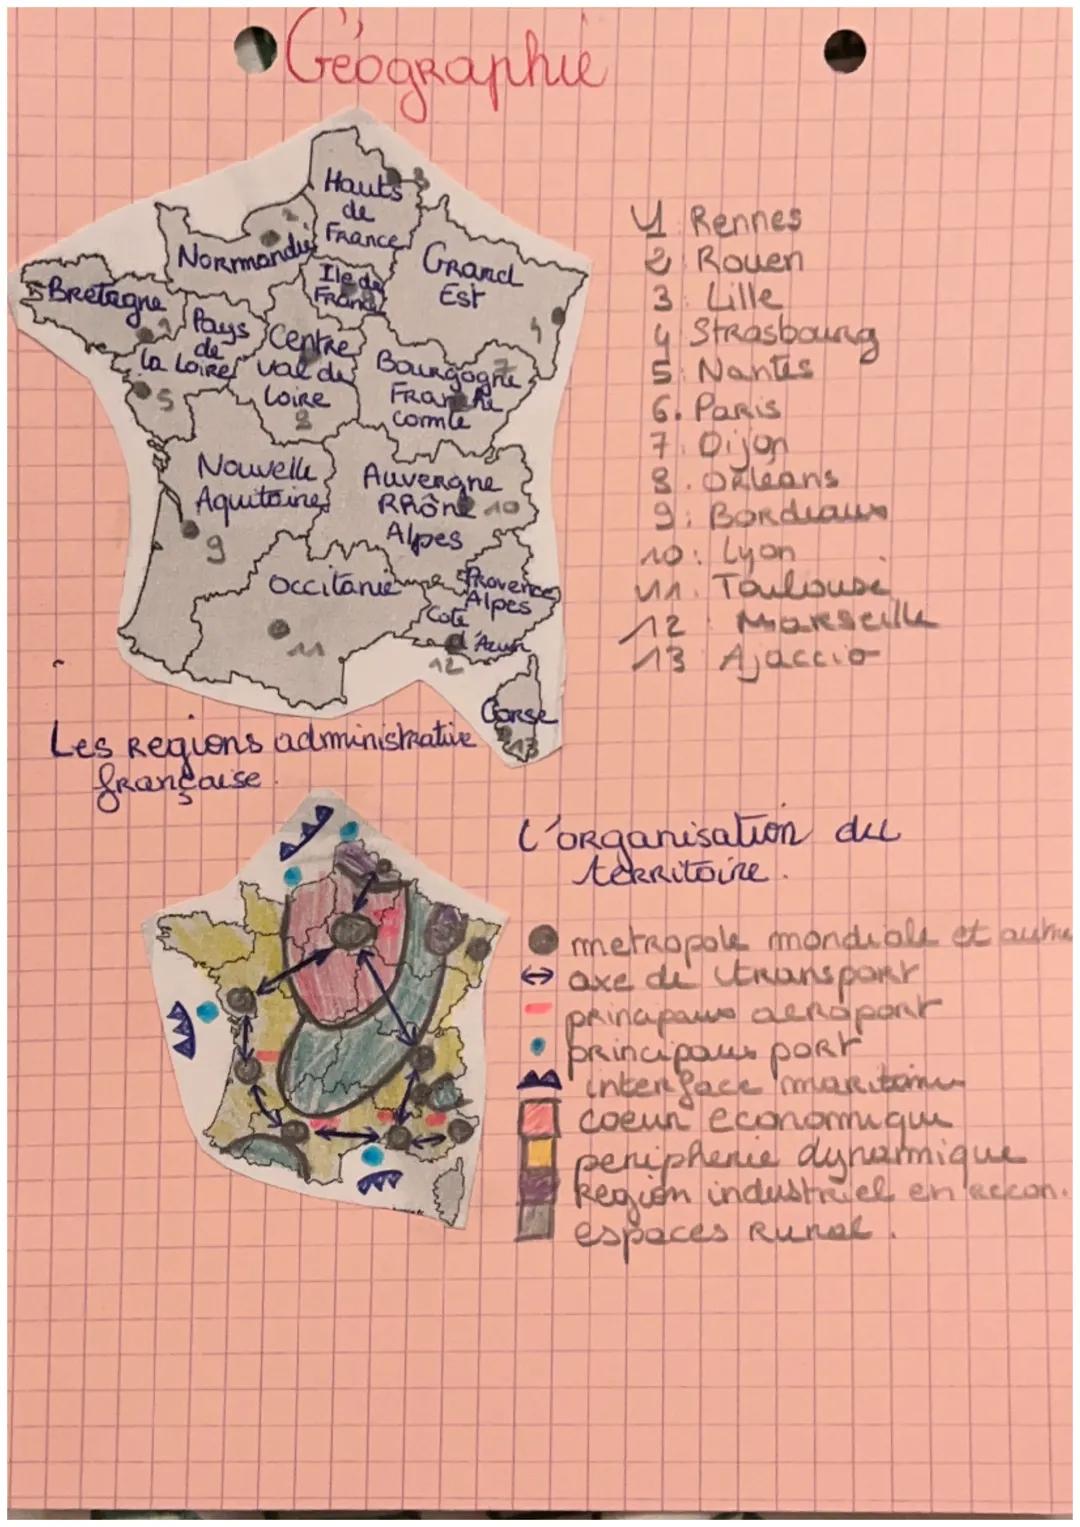 Géographie
Hauts
de
France
3
2
Normandie
Ile de
France
6
Grand
Est
4
Bretagne
1
Pays
de
la Loire
5
Centre
val de
Loire
8
Bourgogne
Franche
comté
7
Nouvelle
Aquitaine
9
Auvergne
Rhône
Alpes
10
Occitanie
11
Provence
Alpes
Cote
d'Azur
12
Corse
13
1 Rennes
2 Rouen
3 Lille
4 Strasbourg
5 Nantes
6. Paris
7. Dijon
8. Orléans
9: Bordeaux
10: Lyon
11. Toulouse
12 Marseille
13 Ajaccio
Les regions administrative
française.
L'organisation du
territoire.
metropole mondiale et autre
axe de transport
principaux aeroport
principaux port
interface maritime
coeur economique
peripherie dynamique
Region industriel en recon.
espaces rural.